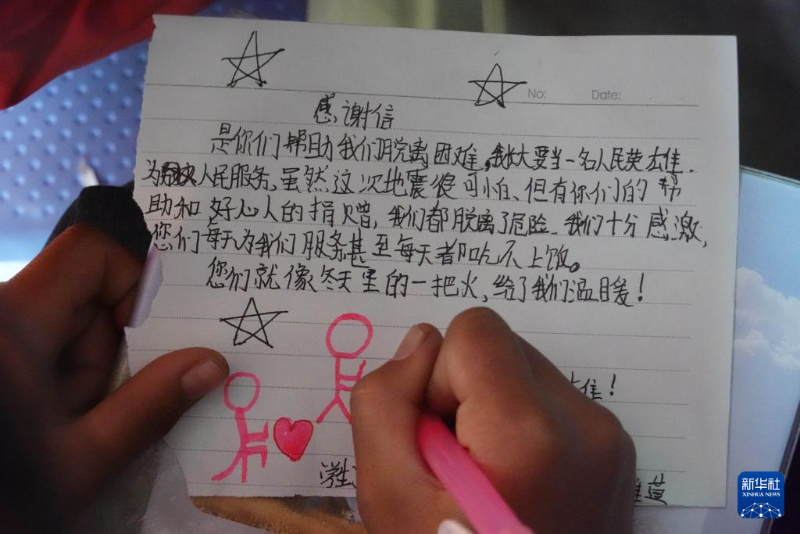 No: Date:
感谢信
是你们帮助我们脱离困难,我长大要当一名人民英雄.
为人民服务,虽然这次地震很可怕、但有你们的帮
助和好心人的捐赠,我们都脱离了危险.我们十分感激,
您们每天为我们服务,甚至每天都吃不上饭。
您们就像冬天里的一把火,给了我们温暖!
雄!
学生
新华社
XINHUA NEWS